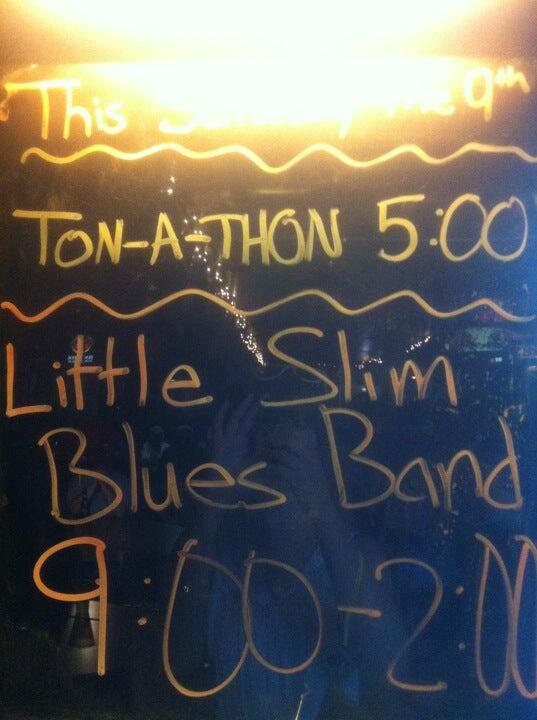 This Sunday the 9th
TON-A-THON 5:00
Little Slim
Blues Band
9:00-2:00